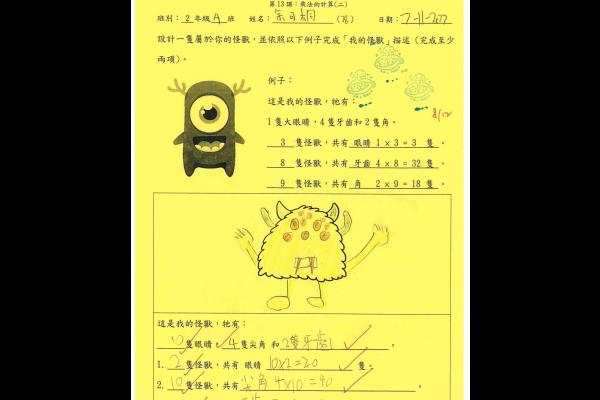 第13課：乘法的計算(二)
班別：2年級A班 姓名： 日期：7-11-2022
設計一隻屬於你的怪獸，並依照以下例子完成「我的怪獸」描述（完成至少
兩項）。
例子：
這是我的怪獸，牠有：
1隻大眼睛，4隻牙齒和2隻角。
3 隻怪獸，共有 眼睛 1 x 3 = 3 隻。
8 隻怪獸，共有 牙齒 4 x 8 = 32 隻。
9 隻怪獸，共有 角 2 x 9 = 18 隻。
8/12
這是我的怪獸，牠有：
10隻眼睛，4隻尖角 和 2隻牙齒。
1. 2隻怪獸，共有 眼睛 10x2=20 隻。
2. 10隻怪獸，共有尖角 4x10=40。